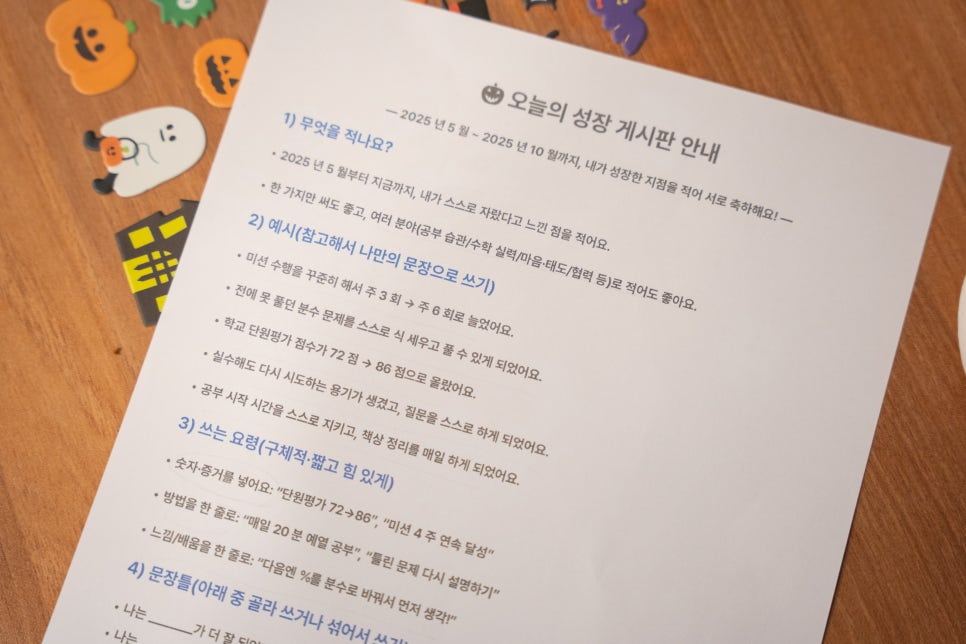 오늘의 성장 게시판 안내
— 2025 년 5 월 ~ 2025 년 10 월까지, 내가 성장한 지점을 적어 서로 축하해요! —
1) 무엇을 적나요?
• 2025 년 5 월부터 지금까지, 내가 스스로 자랐다고 느낀 점을 적어요.
• 한 가지만 써도 좋고, 여러 분야(공부 습관/수학 실력/마음·태도/협력 등)로 적어도 좋아요.
2) 예시(참고해서 나만의 문장으로 쓰기)
• 미션 수행을 꾸준히 해서 주 3 회 → 주 6 회로 늘었어요.
• 전에 못 풀던 분수 문제를 스스로 식 세우고 풀 수 있게 되었어요.
• 학교 단원평가 점수가 72 점 → 86 점으로 올랐어요.
• 실수해도 다시 시도하는 용기가 생겼고, 질문을 스스로 하게 되었어요.
• 공부 시작 시간을 스스로 지키고, 책상 정리를 매일 하게 되었어요.
3) 쓰는 요령(구체적·짧고 힘 있게)
• 숫자·증거를 넣어요: “단원평가 72→86”, “미션 4 주 연속 달성”
• 방법을 한 줄로: “매일 20 분 예열 공부”, “틀린 문제 다시 설명하기”
• 느낌/배움을 한 줄로: “다음엔 %를 분수로 바꿔서 먼저 생각!”
4) 문장틀(아래 중 골라 쓰거나 섞어서 쓰기)
• 나는 _______가 더 잘
• 나는